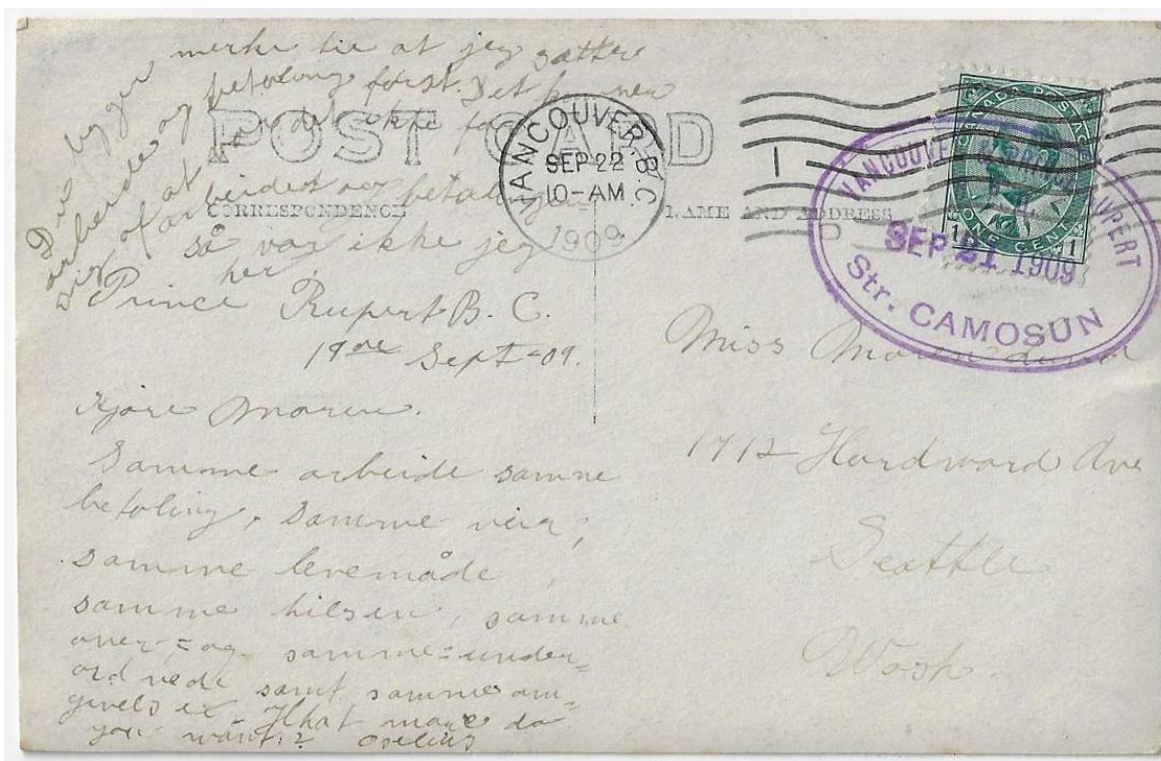 merke tie at jeg sætter
Du
arbeide og betaling først. Det
at
arbeidet og betalingen
så var ikke jeg
her.
POST CARD
CORRESPONDENCE
NAME AND ADDRESS
VANCOUVER B.C.
SEP 22
10-AM
1909
1
CANADA POSTAGE
ONE CENT
1 1
VANCOUVER & PRINCE RUPERT
SEP 21 1909
Str. CAMOSUN
Prince Rupert B. C.
19de Sept-09.
Kjære Maren.
Samme arbeide samme
betaling, samme veir,
samme levemåde,
samme hilsen, samme
over= og samme=under=
ordnede samt samme om=
givelser. What more do
you want?
Miss Maren
1712 Hardward Ave
Seattle
Wash.